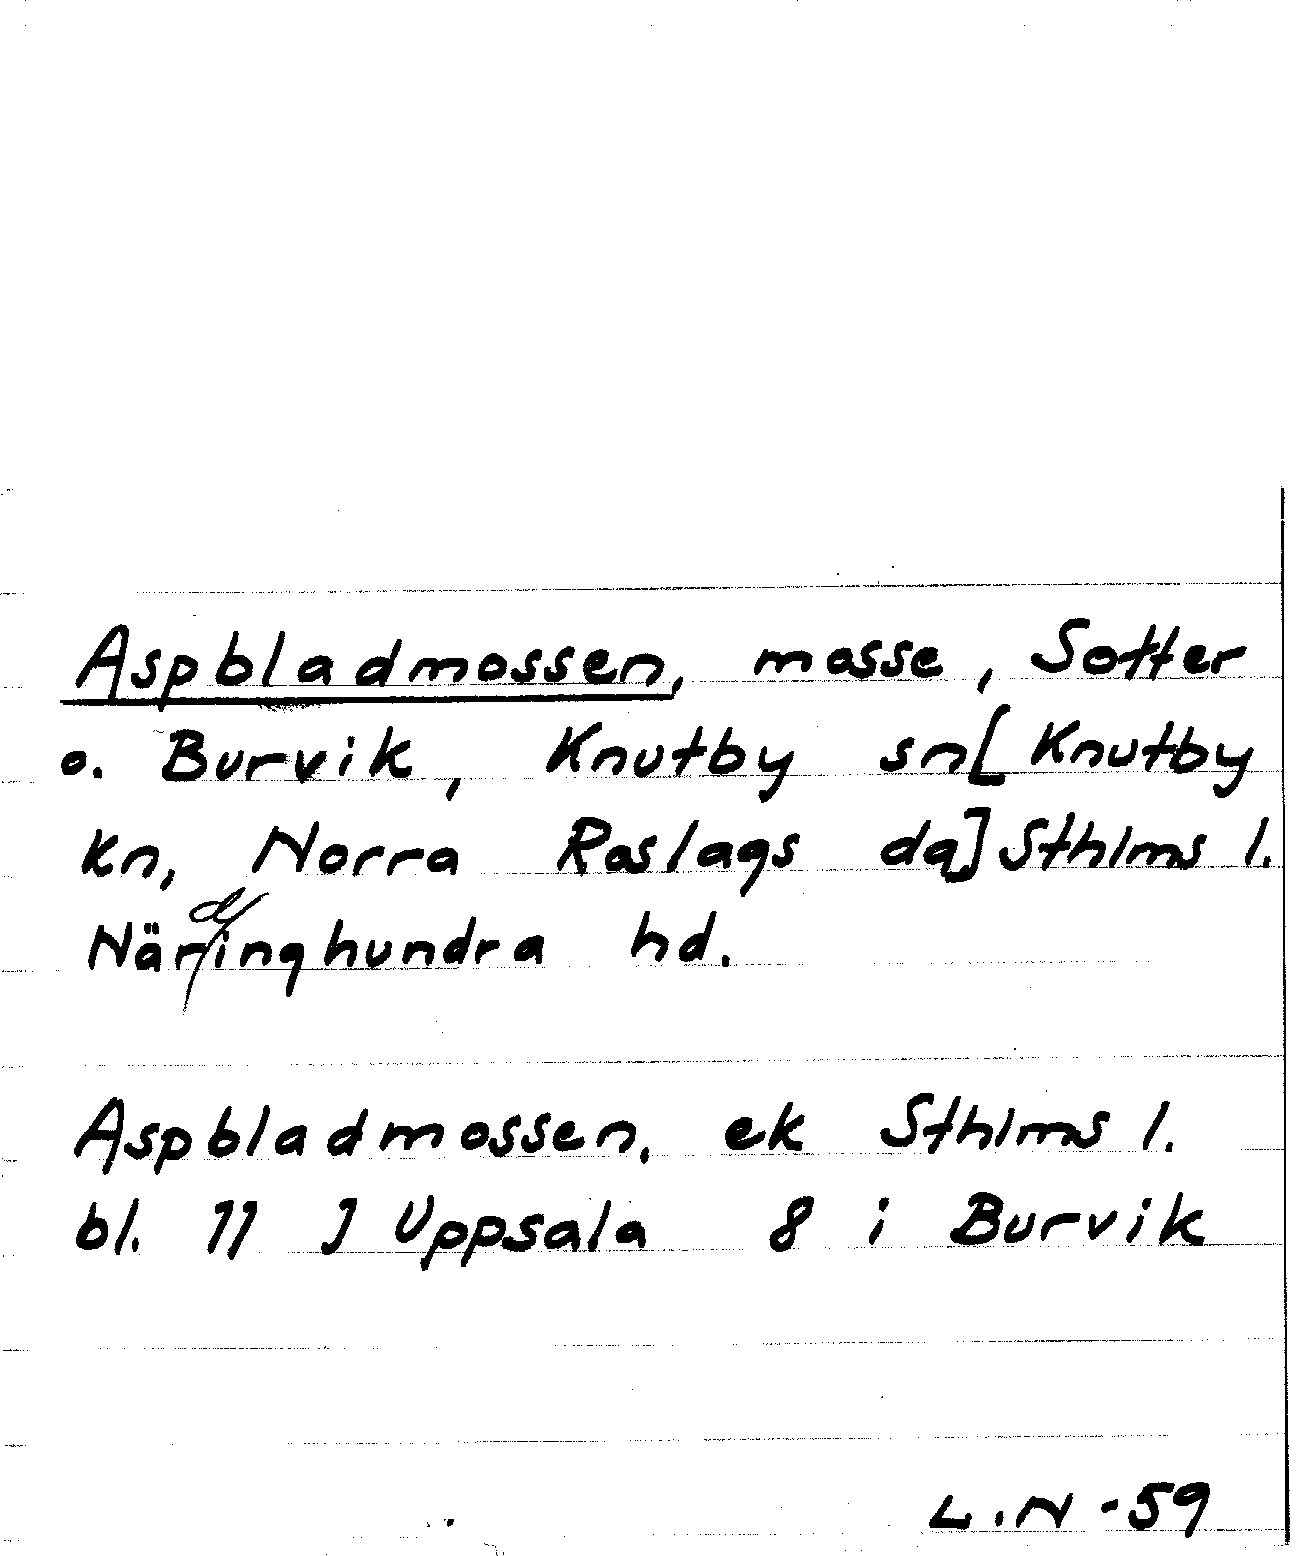 Aspbladmossen, mosse, Sotter
o. Burvik, Knutby sn[Knutby
kn, Norra Roslags dq]Sthlms l.
Närdinghundra hd.
Aspbladmossen. ek Sthlms l.
bl. 11 J Uppsala 8 i Burvik
L.N -59